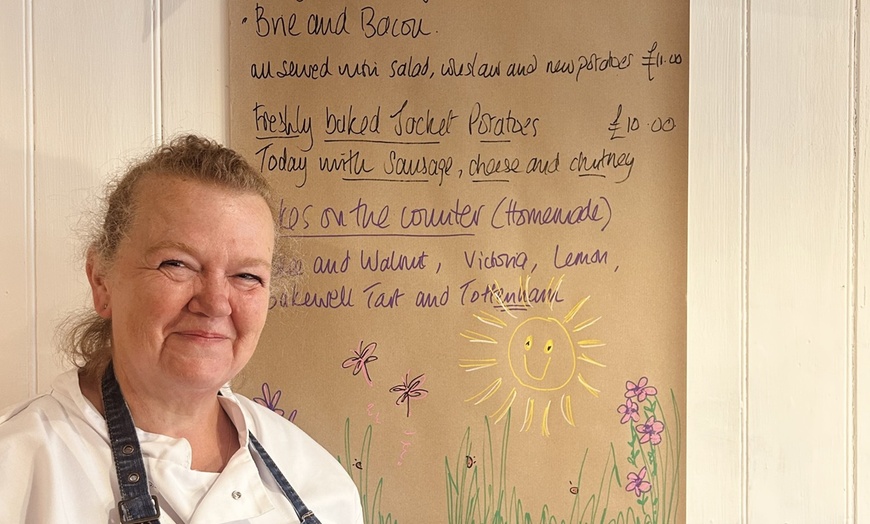 • Brie and Bacon.
all served with salad, coleslaw and new potatoes £11.00
Freshly baked Jacket Potatoes £10.00
Today with Sausage, cheese and chutney
kes on the counter (Homemade)
and Walnut, Victoria, Lemon,
Bakewell Tart and Tottenham